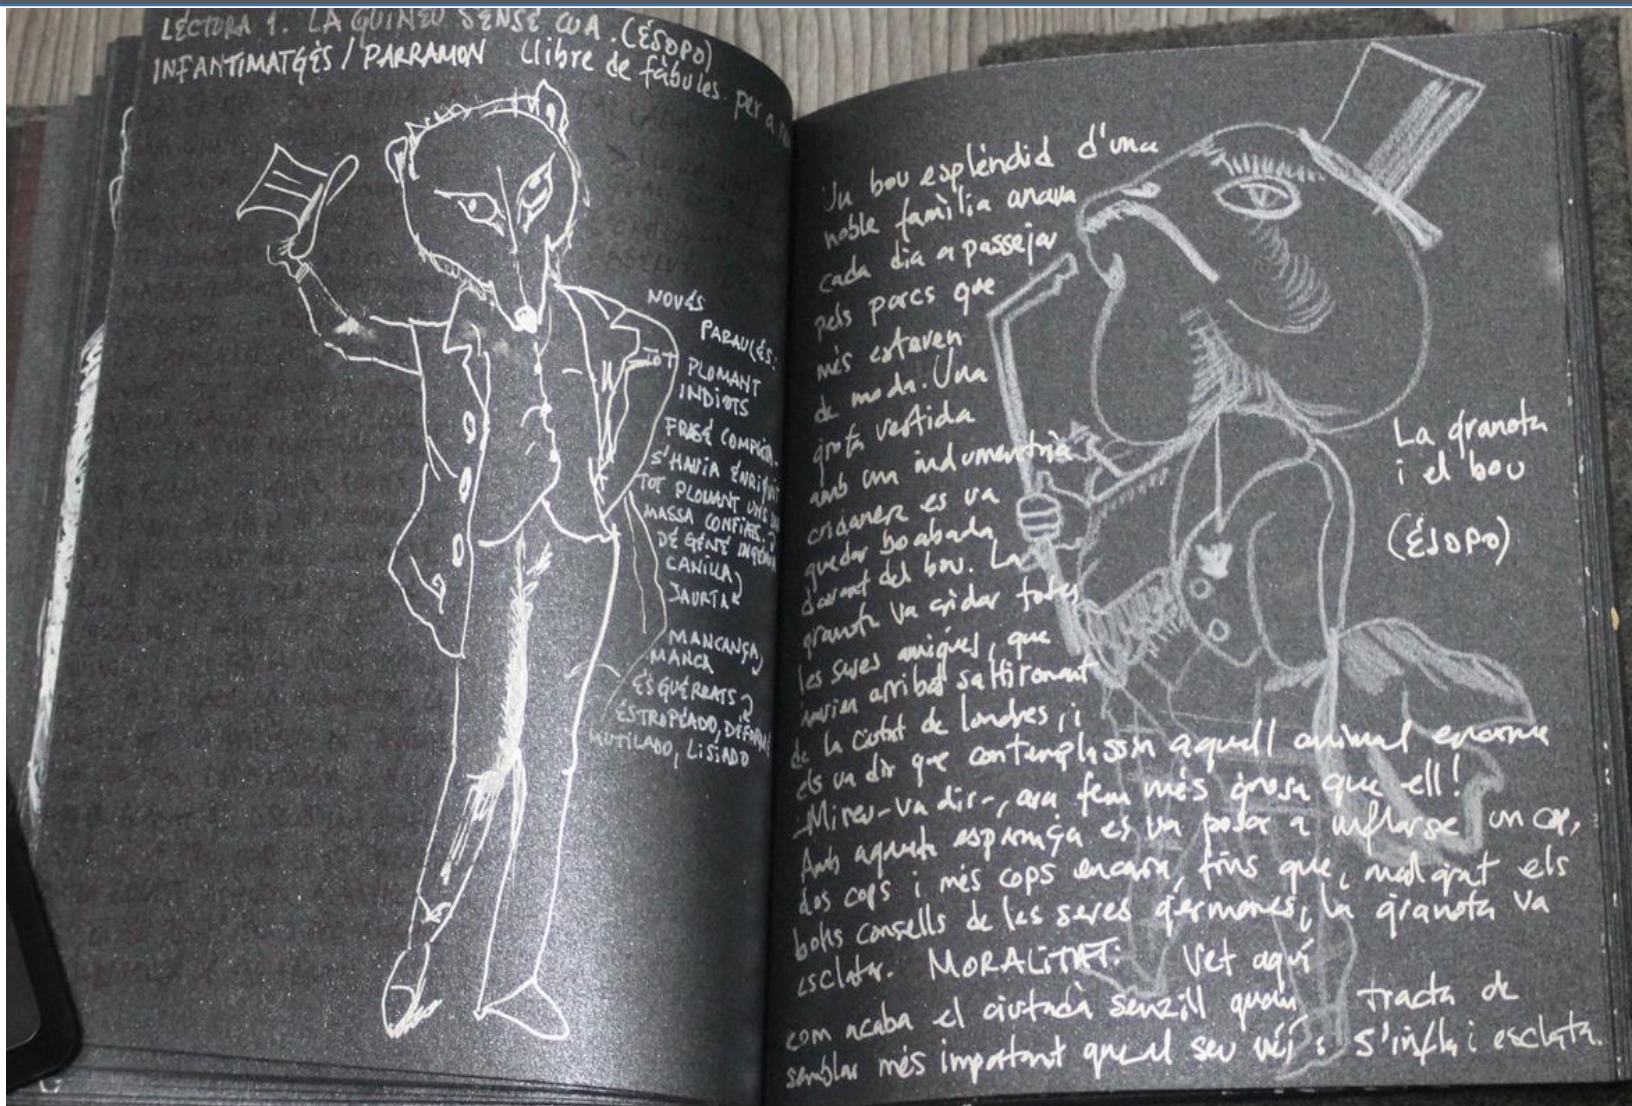 LECTURA 1. LA GUINEU SENSE CUA. (ÉSOPO)
INFANTIMATGÈS / PARRAMON Llibre de fàbules. per a
NOVÉS
PARAULÉS:
TOT PLOMANT
INDIOTS
FRASÉ COMPLÉTA
S'HAVIA ÉNRIQUIT
TOT PLOMANT UNS
MASSA CONFIATS.
DÉ GÉNÉ
CANILLA
JAURIA
MANCANÇA,
MANCA
ÉSGUÉRRATS
ÉSTROPÉADO, DÉFORMÉ
MUTILADO, LISIADO
Un bou esplèndid d'una
noble família anava
cada dia a passejar
pels parcs que
més estaven
de moda. Una
grota vestida
amb un indumentrià
cridaner es va
quedar boabada
davant del bou. La
granota va cridar totes
les seves amigues, que
havien arribat saltironant
de la ciutat de Londres, i
els va dir que contemplassin aquell animal enorme
-Mireu-va dir-, ara fem més grossa que ell!
Amb aquesta esperança es va posar a inflarse un cop,
dos cops i més cops encara, fins que, malgrat els
bons consells de les seves germanes, la granota va
esclatar. MORALITAT: Vet aquí
com acaba el ciutadà senzill quan tracta de
semblar més important que el seu veí: s'infla i esclata.
La granota
i el bou
(ÉSOPO)